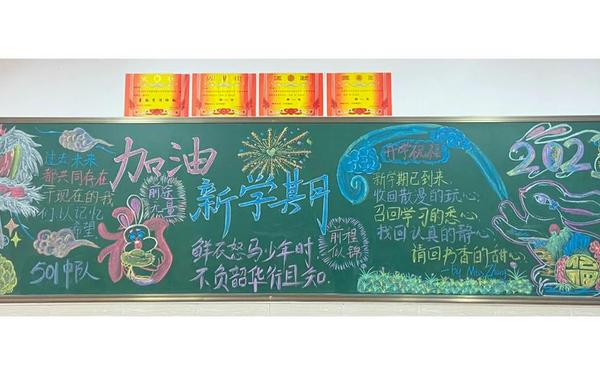 过去未来
都共同存在
于现在的我
们以记忆
希望
501中队
加油
前途
无量
新学期
鲜衣怒马少年时
不负韶华行且知
前程
似锦
开学祝福
新学期已到来,
收回散漫的玩心
召回学习的悉心
找回认真的静心
请回书香的甜心
202
福